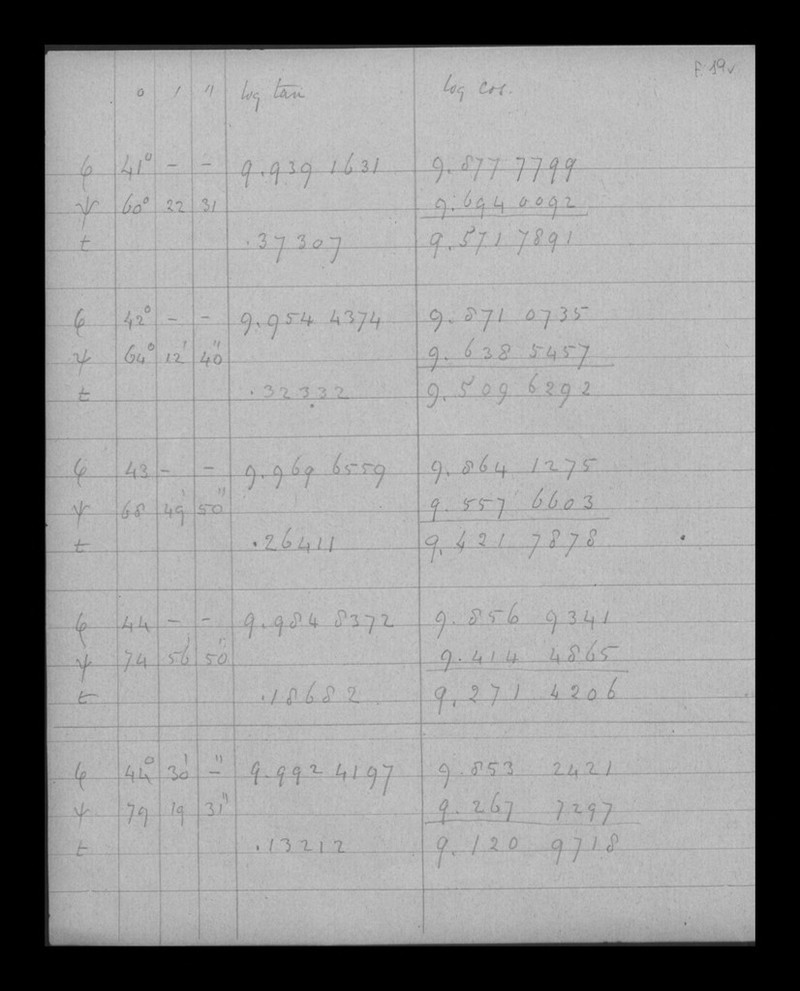 F. 19v
° ′ ″ log tan log cos.
φ 41° – – 9.939 1631 9.877 7799
ψ 60° 22 31 9.694 0092
t .37307 9.571 7891
φ 42° – – 9.954 4374 9.871 0735
ψ 64° 12′ 40″ 9.638 5457
t .32332 9.509 6292
φ 43 – – 9.969 6559 9.864 1275
ψ 68 49′ 50″ 9.557 6603
t .26411 9.421 7878
φ 44 – – 9.984 8372 9.856 9341
ψ 74 56′ 50″ 9.414 4865
t .18682 9.271 4206
φ 44° 30′ –″ 9.992 4197 9.853 2421
ψ 79 19 31″ 9.267 7297
t .13212 9.120 9718